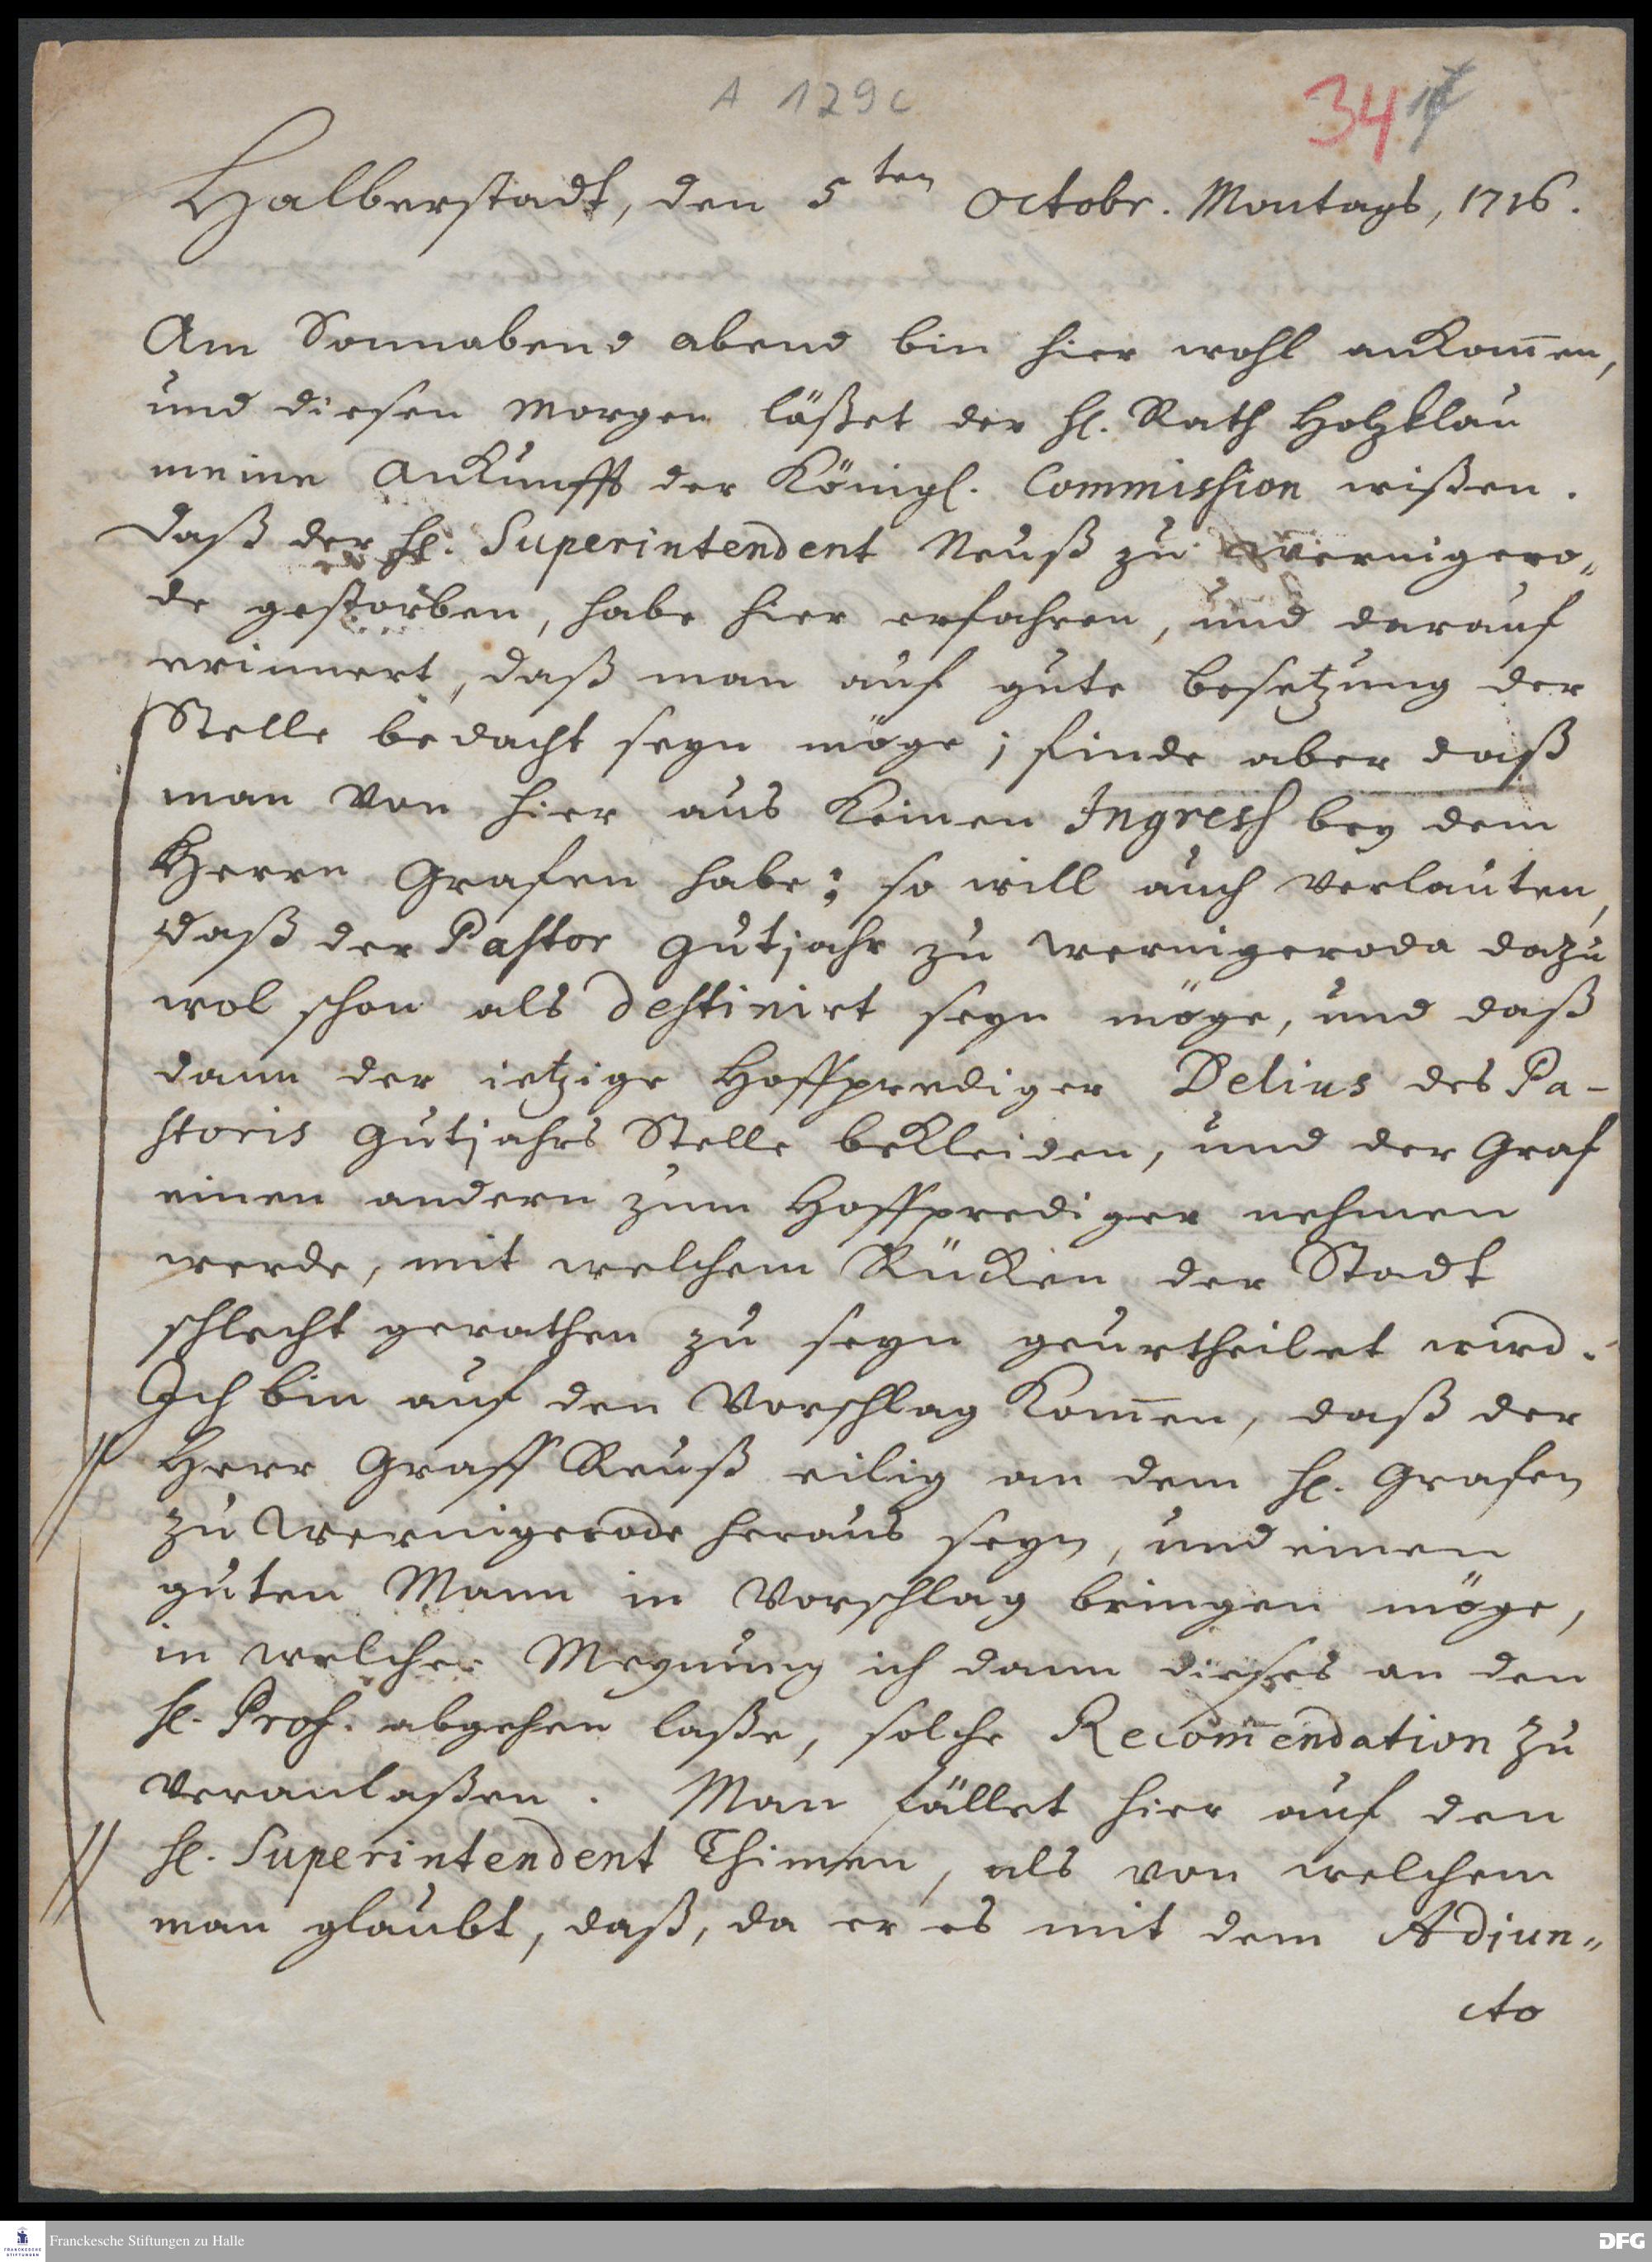 A 129c
34
Halberstadt, den 5ten Octobr. Montags, 1716.
Am Sonnabend abend bin hier wohl ankom̅en,
und diesen Morgen läßet der H. Rath Holzklau
meine Ankunfft der Königl. Commission wißen.
Daß der H. Superintendent Neuß zu Wernigero„
de gestorben, habe hier erfahren, und darauf
erinnert, daß man auf gute besetzung der
Stelle bedacht seyn möge; finde aber daß
man von hier aus keinen Ingress bey dem
Herrn Grafen habe: so will auch verlauten,
daß der Pastor Gutjahr zu Wernigeroda dazu
wol schon als destinirt seyn möge, und daß
dann der ietzige Hoffprediger Delius des Pa-
storis Gutjahrs Stelle bekleiden, und der Graf
einen andern zum Hoffprediger nehmen
werde, mit welchem Rücken der Stadt
schlecht gerathen zu seyn geurtheilet wird.
Ich bin auf den Vorschlag kom̅en, daß der
Herr Graff Reuß eilig an dem H. Grafen
zu Wernigerode heraus seyn, und einen
guten Mann in Vorschlag bringen möge,
in welcher Meynung ich dann dieses an den
H. Prof. abgehen laße, solche Recom̅endation zu
veranlaßen. Man fället hier auf den
H. Superintendent Thimen, als von welchem
man glaubt, daß, da er es mit dem Adjun„
cto
Franckesche Stiftungen zu Halle
DFG